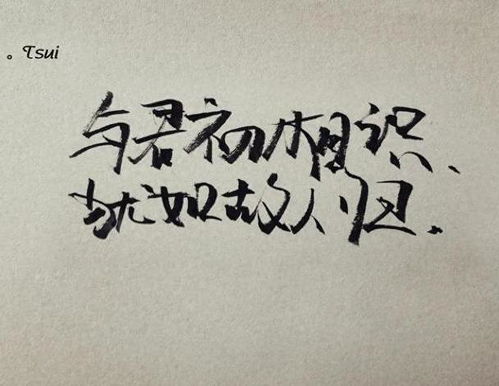 。Tsui
与君初相识、
犹如故人归.